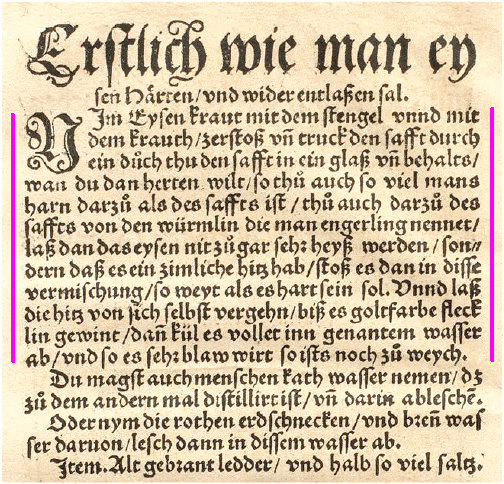 Erstlich wie man ey
sen Härten/vnd wider entlaßen sal.
NIm Eysen kraut mit dem stengel vnnd mit
dem krauth/zerstoß vñ truck den safft durch
ein důch thu den safft in ein glaß vñ behalts/
wan du dan herten wilt/so thů auch so viel mans
harn darzů als des saffts ist/thů auch darzů des
saffts von den würmlin die man engerling nennet/
laß dan das eysen nit zů gar sehr heyß werden/son⸗
dern daß es ein zimliche hitz hab/stoß es dan in disse
vermischung/so weyt als es hart sein sol. Vnnd laß
die hitz von sich selbst vergehn/biß es goltfarbe fleck
lin gewint/dañ kül es vollet inn genantem wasser
ab/vnd so es sehr blaw wirt so ists noch zů weych.
Du magst auch menschen kath wasser nemen/dz
zů dem andern mal distillirt ist/vñ darin ableschẽ.
Oder nym die rothen erdschnecken/vnd breñ was
ser daruon/lesch dann in dissem wasser ab.
Item. Alt gebrant ledder/vnd halb so viel saltz.